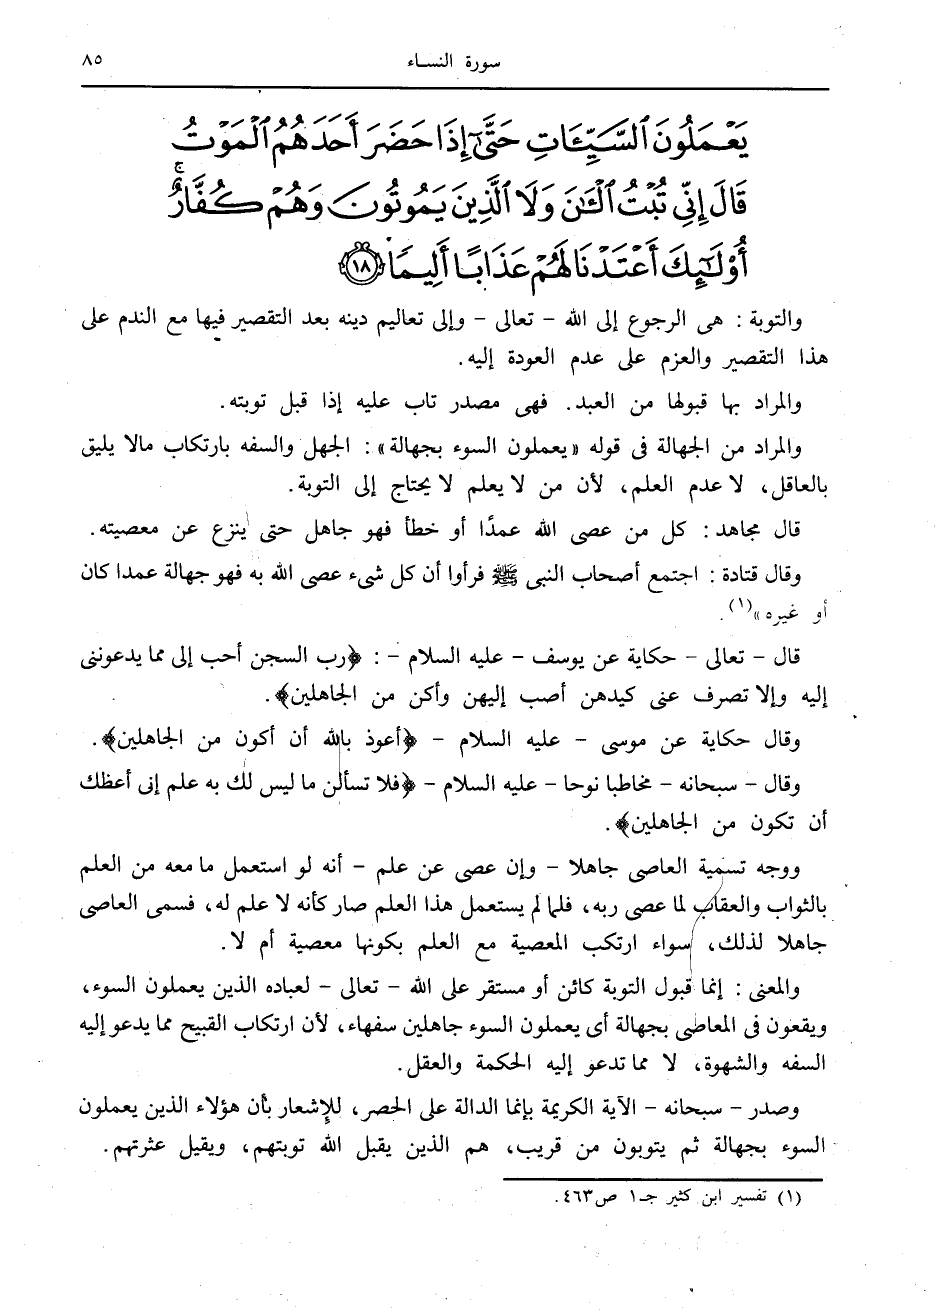 سورة النساء ٨٥
يَعْمَلُونَ ٱلسَّيِّـَٔاتِ حَتَّىٰٓ إِذَا حَضَرَ أَحَدَهُمُ ٱلْمَوْتُ
قَالَ إِنِّى تُبْتُ ٱلْـَٰٔنَ وَلَا ٱلَّذِينَ يَمُوتُونَ وَهُمْ كُفَّارٌ ۚ
أُو۟لَـٰٓئِكَ أَعْتَدْنَا لَهُمْ عَذَابًا أَلِيمًا ١٨
والتوبة : هى الرجوع إلى الله - تعالى - وإلى تعاليم دينه بعد التقصير فيها مع الندم على
هذا التقصير والعزم على عدم العودة إليه.
والمراد بها قبولها من العبد. فهى مصدر تاب عليه إذا قبل توبته.
والمراد من الجهالة فى قوله «يعملون السوء بجهالة» : الجهل والسفه بارتكاب مالا يليق
بالعاقل، لا عدم العلم، لأن من لا يعلم لا يحتاج إلى التوبة.
قال مجاهد : كل من عصى الله عمدًا أو خطأ فهو جاهل حتى ينزع عن معصيته.
وقال قتادة : اجتمع أصحاب النبى ﷺ فرأوا أن كل شىء عصى الله به فهو جهالة عمدا كان
أو غيره»(١).
قال - تعالى - حكاية عن يوسف - عليه السلام - : ﴿رب السجن أحب إلى مما يدعوننى
إليه وإلا تصرف عنى كيدهن أصب إليهن وأكن من الجاهلين﴾.
وقال حكاية عن موسى - عليه السلام - ﴿أعوذ بالله أن أكون من الجاهلين﴾.
وقال - سبحانه - مخاطبا نوحا - عليه السلام - ﴿فلا تسألن ما ليس لك به علم إنى أعظك
أن تكون من الجاهلين﴾.
ووجه تسمية العاصى جاهلا - وإن عصى عن علم - أنه لو استعمل ما معه من العلم
بالثواب والعقاب لما عصى ربه، فلما لم يستعمل هذا العلم صار كأنه لا علم له، فسمى العاصى
جاهلا لذلك، سواء ارتكب المعصية مع العلم بكونها معصية أم لا.
والمعنى : إنما قبول التوبة كائن أو مستقر على الله - تعالى - لعباده الذين يعملون السوء،
ويقعون فى المعاصى بجهالة أى يعملون السوء جاهلين سفهاء، لأن ارتكاب القبيح مما يدعو إليه
السفه والشهوة، لا مما تدعو إليه الحكمة والعقل.
وصدر - سبحانه - الآية الكريمة بإنما الدالة على الحصر، للإشعار بأن هؤلاء الذين يعملون
السوء بجهالة ثم يتوبون من قريب، هم الذين يقبل الله توبتهم، ويقيل عثرتهم.
(١) تفسير ابن كثير جـ١ ص٤٦٣.